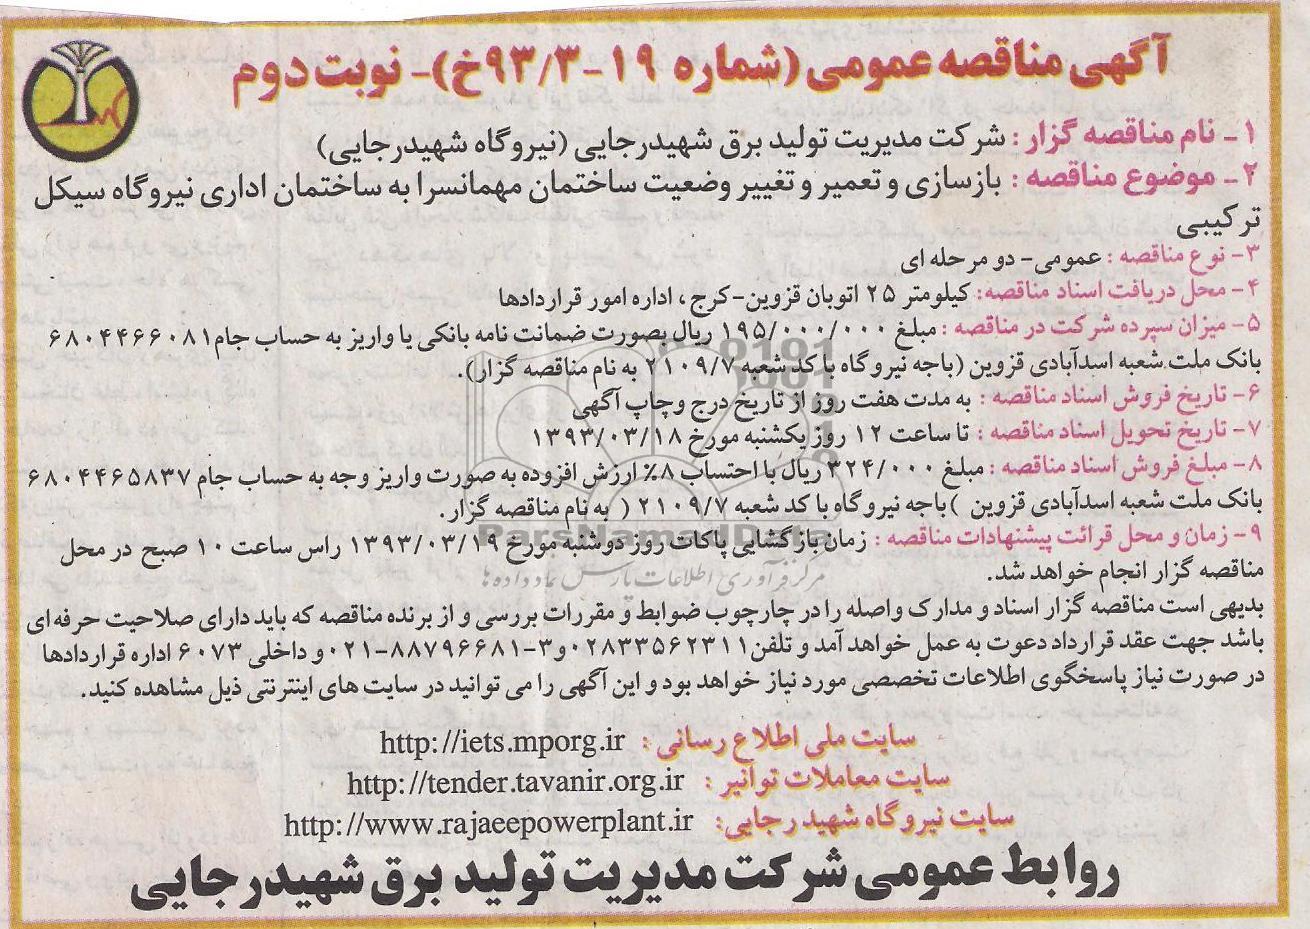 آگهی مناقصه عمومی (شماره ۱۹-۹۳/۳خ)- نوبت دوم
۱ـ نام مناقصه گزار : شرکت مدیریت تولید برق شهیدرجایی (نیروگاه شهیدرجایی)
۲ـ موضوع مناقصه : بازسازی و تعمیر و تغییر وضعیت ساختمان مهمانسرا به ساختمان اداری نیروگاه سیکل
ترکیبی
۳- نوع مناقصه : عمومی- دو مرحله ای
۴- محل دریافت اسناد مناقصه: کیلومتر ۲۵ اتوبان قزوین-کرج ، اداره امور قراردادها
۵- میزان سپرده شرکت در مناقصه : مبلغ ۱۹۵/۰۰۰/۰۰۰ ریال بصورت ضمانت نامه بانکی یا واریز به حساب جام۶۸۰۴۴۶۶۰۸۱
بانک ملت شعبه اسدآبادی قزوین (باجه نیروگاه با کد شعبه ۲۱۰۹/۷ به نام مناقصه گزار).
۶- تاریخ فروش اسناد مناقصه : به مدت هفت روز از تاریخ درج وچاپ آگهی
۷- تاریخ تحویل اسناد مناقصه : تا ساعت ۱۲ روز یکشنبه مورخ ۱۳۹۳/۰۳/۱۸
۸- مبلغ فروش اسناد مناقصه : مبلغ ۳۲۴/۰۰۰ ریال با احتساب ۸٪ ارزش افزوده به صورت واریز وجه به حساب جام ۶۸۰۴۴۶۵۸۳۷
بانک ملت شعبه اسدآبادی قزوین )باجه نیروگاه با کد شعبه ۲۱۰۹/۷ ( به نام مناقصه گزار.
۹- زمان و محل قرائت پیشنهادات مناقصه : زمان بازگشایی پاکات روز دوشنبه مورخ ۱۳۹۳/۰۳/۱۹ راس ساعت ۱۰ صبح در محل
مناقصه گزار انجام خواهد شد.
بدیهی است مناقصه گزار اسناد و مدارک واصله را در چارچوب ضوابط و مقررات بررسی و از برنده مناقصه که باید دارای صلاحیت حرفه ای
باشد جهت عقد قرارداد دعوت به عمل خواهد آمد و تلفن۰۲۸۳۳۵۶۲۳۱۱و۳-۸۸۷۹۶۶۸۱-۰۲۱و داخلی ۶۰۷۳ اداره قراردادها
در صورت نیاز پاسخگوی اطلاعات تخصصی مورد نیاز خواهد بود و این آگهی را می توانید در سایت های اینترنتی ذیل مشاهده کنید.
سایت ملی اطلاع رسانی : http://iets.mporg.ir
سایت معاملات توانیر : http://tender.tavanir.org.ir
سایت نیروگاه شهید رجایی: http://www.rajaeepowerplant.ir
روابط عمومی شرکت مدیریت تولید برق شهیدرجایی
ParsNamadData
مرکز فرآوری اطلاعات پارس نماد داده‌ها